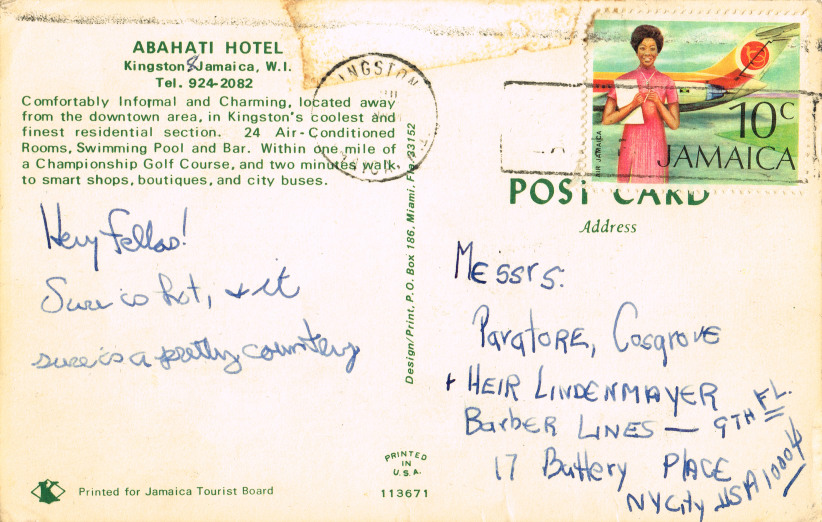 ABAHATI HOTEL
Kingston 8 Jamaica, W.I.
Tel. 924-2082
Comfortably Informal and Charming, located away
from the downtown area, in Kingston's coolest and
finest residential section. 24 Air-Conditioned
Rooms, Swimming Pool and Bar. Within one mile of
a Championship Golf Course, and two minutes walk
to smart shops, boutiques, and city buses.
Hey Fellas!
Sure is hot, & it
sure is a pretty country
Printed for Jamaica Tourist Board
Design/Print, P.O. Box 186, Miami, Fla. 33152
PRINTED
IN
U.S.A.
113671
KINGSTON
JAMAICA
AIR JAMAICA
10c
JAMAICA
POST CARD
Address
Messrs.
Paratore, Cosgrove
+ HEIR LINDENMAYER
Barber LINES — 9TH FL.
17 Battery PlACE
NYCity USA 10004